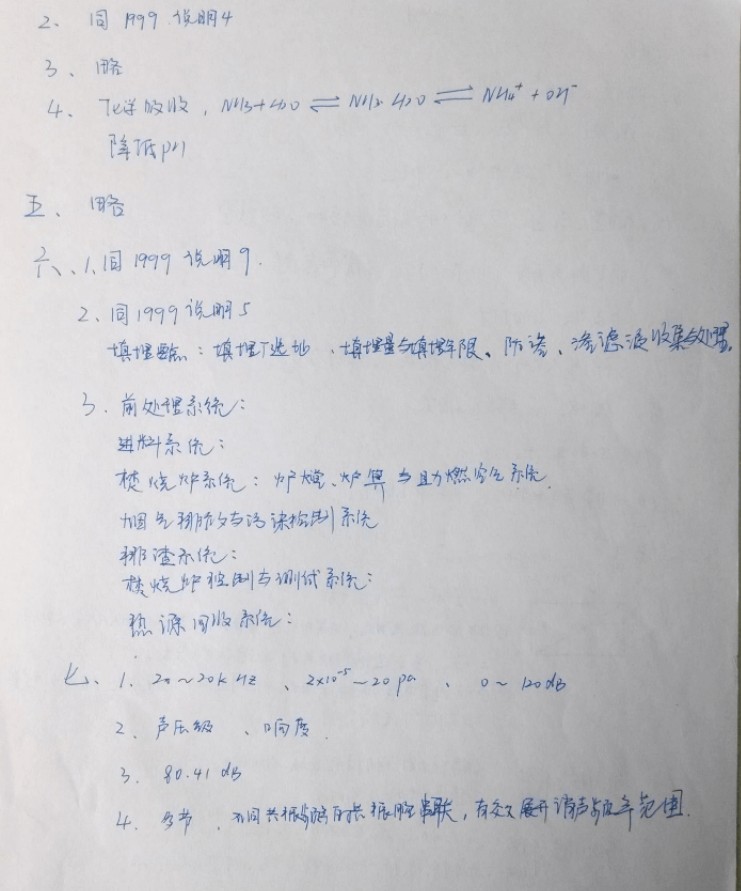 2、 同1999 说明4
3、 略
4、 化学吸收，NH3+H2O ⇌ NH3·H2O ⇌ NH4⁺ + OH⁻
降低pH
五、 略
六、1、同1999 说明9.
2、同1999 说明5
填埋要点：填埋厂选址、填埋量与填埋年限、防渗、渗滤液收集与处理。
3. 前处理系统：
进料系统：
焚烧炉系统：炉膛、炉箅与助燃空气系统.
烟气排放与污染控制系统
排渣系统：
焚烧炉控制与测试系统：
热源回收系统：
七、1. 20～20k Hz 、2×10⁻⁵～20 pa 、 0～120dB
2. 声压级 、响度.
3. 80.41 dB
4. 多节 ，不同共振频的共振腔串联，有效展开消声频率范围.